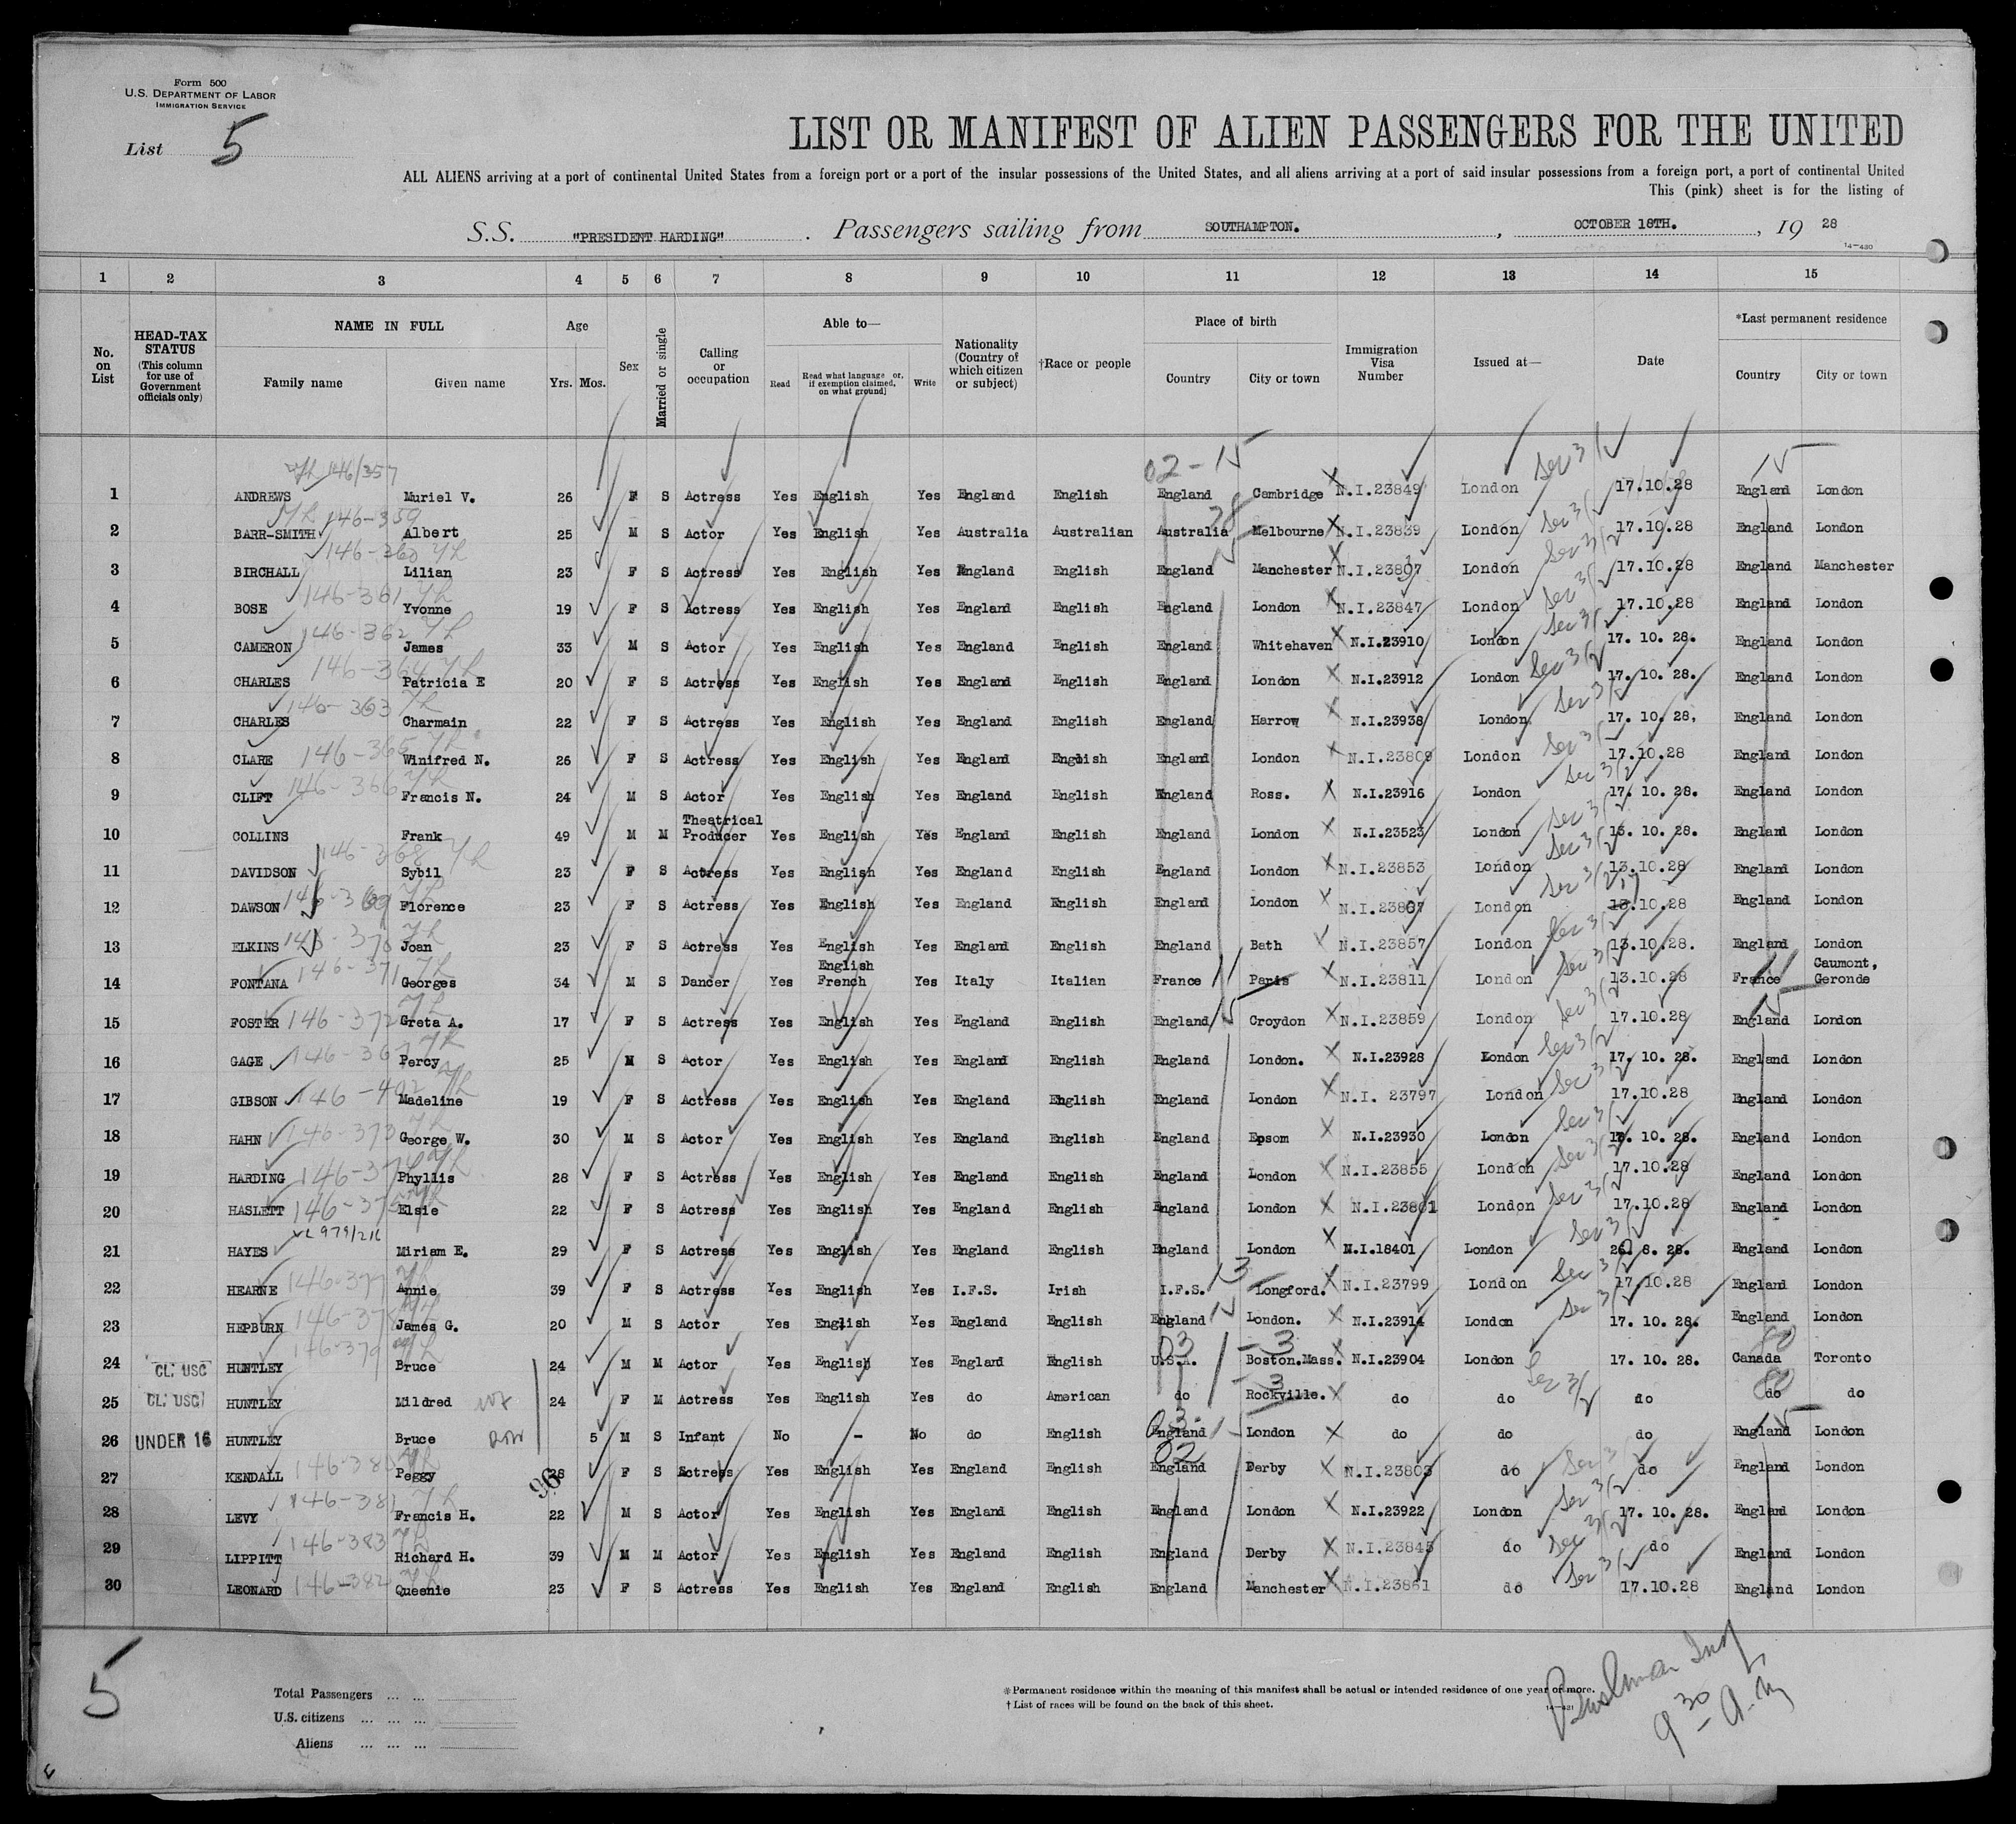 Form 500
U.S. DEPARTMENT OF LABOR
IMMIGRATION SERVICE
List 5
LIST OR MANIFEST OF ALIEN PASSENGERS FOR THE UNITED
ALL ALIENS arriving at a port of continental United States from a foreign port or a port of the insular possessions of the United States, and all aliens arriving at a port of said insular possessions from a foreign port, a port of continental United
This (pink) sheet is for the listing of
S.S. "PRESIDENT HARDING". Passengers sailing from SOUTHAMPTON., OCTOBER 18TH., 19 28
14-430
1 2 3 4 5 6 7 8 9 10 11 12 13 14 15
No. on List HEAD-TAX STATUS (This column for use of Government officials only) NAME IN FULL Family name Given name Age Yrs. Mos. Sex Married or single Calling or occupation Able to— Read Read what language or, if exemption claimed, on what ground] Write Nationality (Country of which citizen or subject) †Race or people Place of birth Country City or town Immigration Visa Number Issued at— Date *Last permanent residence Country City or town
146/357 02-15 15
1 ANDREWS Muriel V. 26 F S Actress Yes English Yes England English England Cambridge N.I.23849 London Sec 3/2 17.10.28 England London
146-359
2 BARR-SMITH Albert 25 M S Actor Yes English Yes Australia Australian Australia Melbourne N.I.23839 London Sec 3/2 17.10.28 England London
146-360
3 BIRCHALL Lilian 23 F S Actress Yes English Yes England English England Manchester N.I.23807 London Sec 3/2 17.10.28 England Manchester
146-361
4 BOSE Yvonne 19 F S Actress Yes English Yes England English England London N.I.23847 London Sec 3/2 17.10.28 England London
146-362
5 CAMERON James 33 M S Actor Yes English Yes England English England Whitehaven N.I.23910 London Sec 3/2 17. 10. 28. England London
146-364
6 CHARLES Patricia E 20 F S Actress Yes English Yes England English England London N.I.23912 London Sec 3/2 17. 10. 28. England London
146-363
7 CHARLES Charmain 22 F S Actress Yes English Yes England English England Harrow N.I.23938 London Sec 3/2 17. 10. 28. England London
8 CLARE 146-365 Winifred N. 26 F S Actress Yes English Yes England English England London N.I.23809 London Sec 3/2 17.10.28 England London
9 CLIFT 146-366 Francis N. 24 M S Actor Yes English Yes England English England Ross. N.I.23916 London Sec 3/2 17. 10. 28. England London
10 COLLINS Frank 49 M M Theatrical Producer Yes English Yes England English England London N.I.23523 London Sec 3/2 13. 10. 28. England London
146-368
11 DAVIDSON Sybil 23 F S Actress Yes English Yes England English England London N.I.23853 London Sec 3/2 13.10.28 England London
12 DAWSON 146-369 Florence 23 F S Actress Yes English Yes England English England London N.I.23807 London Sec 3/2 17 13.10.28 England London
13 ELKINS 146-370 Joan 23 F S Actress Yes English Yes England English England Bath N.I.23857 London Sec 3/2 13.10.28. England London
14 FONTANA 146-371 Georges 34 M S Dancer Yes English French Yes Italy Italian France Paris N.I.23811 London Sec 3/2 13.10.28 France Caumont, Geronde
15 FOSTER 146-372 Greta A. 17 F S Actress Yes English Yes England English England Croydon N.I.23859 London Sec 3/2 17.10.28 England London
16 GAGE 146-367 Percy 25 M S Actor Yes English Yes England English England London. N.I.23928 London Sec 3/2 17. 10. 28. England London
17 GIBSON 146-402 Madeline 19 F S Actress Yes English Yes England English England London N.I. 23797 London Sec 3/2 17.10.28 England London
18 HAHN 146-373 George W. 30 M S Actor Yes English Yes England English England Epsom N.I.23930 London Sec 3/2 10. 28. England London
19 HARDING 146-374 Phyllis 28 F S Actress Yes English Yes England English England London N.I.23855 London Sec 3/2 17.10.28 England London
20 HASLETT 146-375 Elsie 22 F S Actress Yes English Yes England English England London N.I.23801 London Sec 3/2 17.10.28 England London
979/216
21 HAYES Miriam E. 29 F S Actress Yes English Yes England English England London N.I.18401 London Sec 3/2 20. 8. 28. England London
22 HEARNE 146-377 Annie 39 F S Actress Yes English Yes I.F.S. Irish I.F.S. 13 Longford. N.I.23799 London Sec 3/2 17.10.28 England London
23 HEPBURN 146-378 James G. 20 M S Actor Yes English Yes England English England 15 London. N.I.23914 London Sec 3/2 17. 10. 28. England London
146-379 03 3 80
24 CL: USC HUNTLEY Bruce 24 M M Actor Yes English Yes England English U.S.A. Boston.Mass. N.I.23904 London 17. 10. 28. Canada Toronto
25 CL: USC HUNTLEY Mildred 24 F M Actress Yes English Yes do American do Rockville. do do Sec 3/2 do do do
26 UNDER 16 HUNTLEY Bruce 5 M S Infant No - No do English England London do do do England London
27 KENDALL 146-380 Peggy 28 F S Actress Yes English Yes England English England Derby N.I.23803 do Sec 3/2 do England London
96
28 LEVY 146-381 Francis H. 22 M S Actor Yes English Yes England English England London N.I.23922 London Sec 3/2 17. 10. 28. England London
29 LIPPITT 146-383 Richard H. 39 M M Actor Yes English Yes England English England Derby N.I.23845 do Sec 3/2 do England London
30 LEONARD 146-382 Queenie 23 F S Actress Yes English Yes England English England Manchester N.I.23861 do Sec 3/2 17.10.28 England London
5
Total Passengers ... ...
U.S. citizens ... ... ...
Aliens ... ... ...
*Permanent residence within the meaning of this manifest shall be actual or intended residence of one year or more.
†List of races will be found on the back of this sheet.
14-421
9 30 A.M